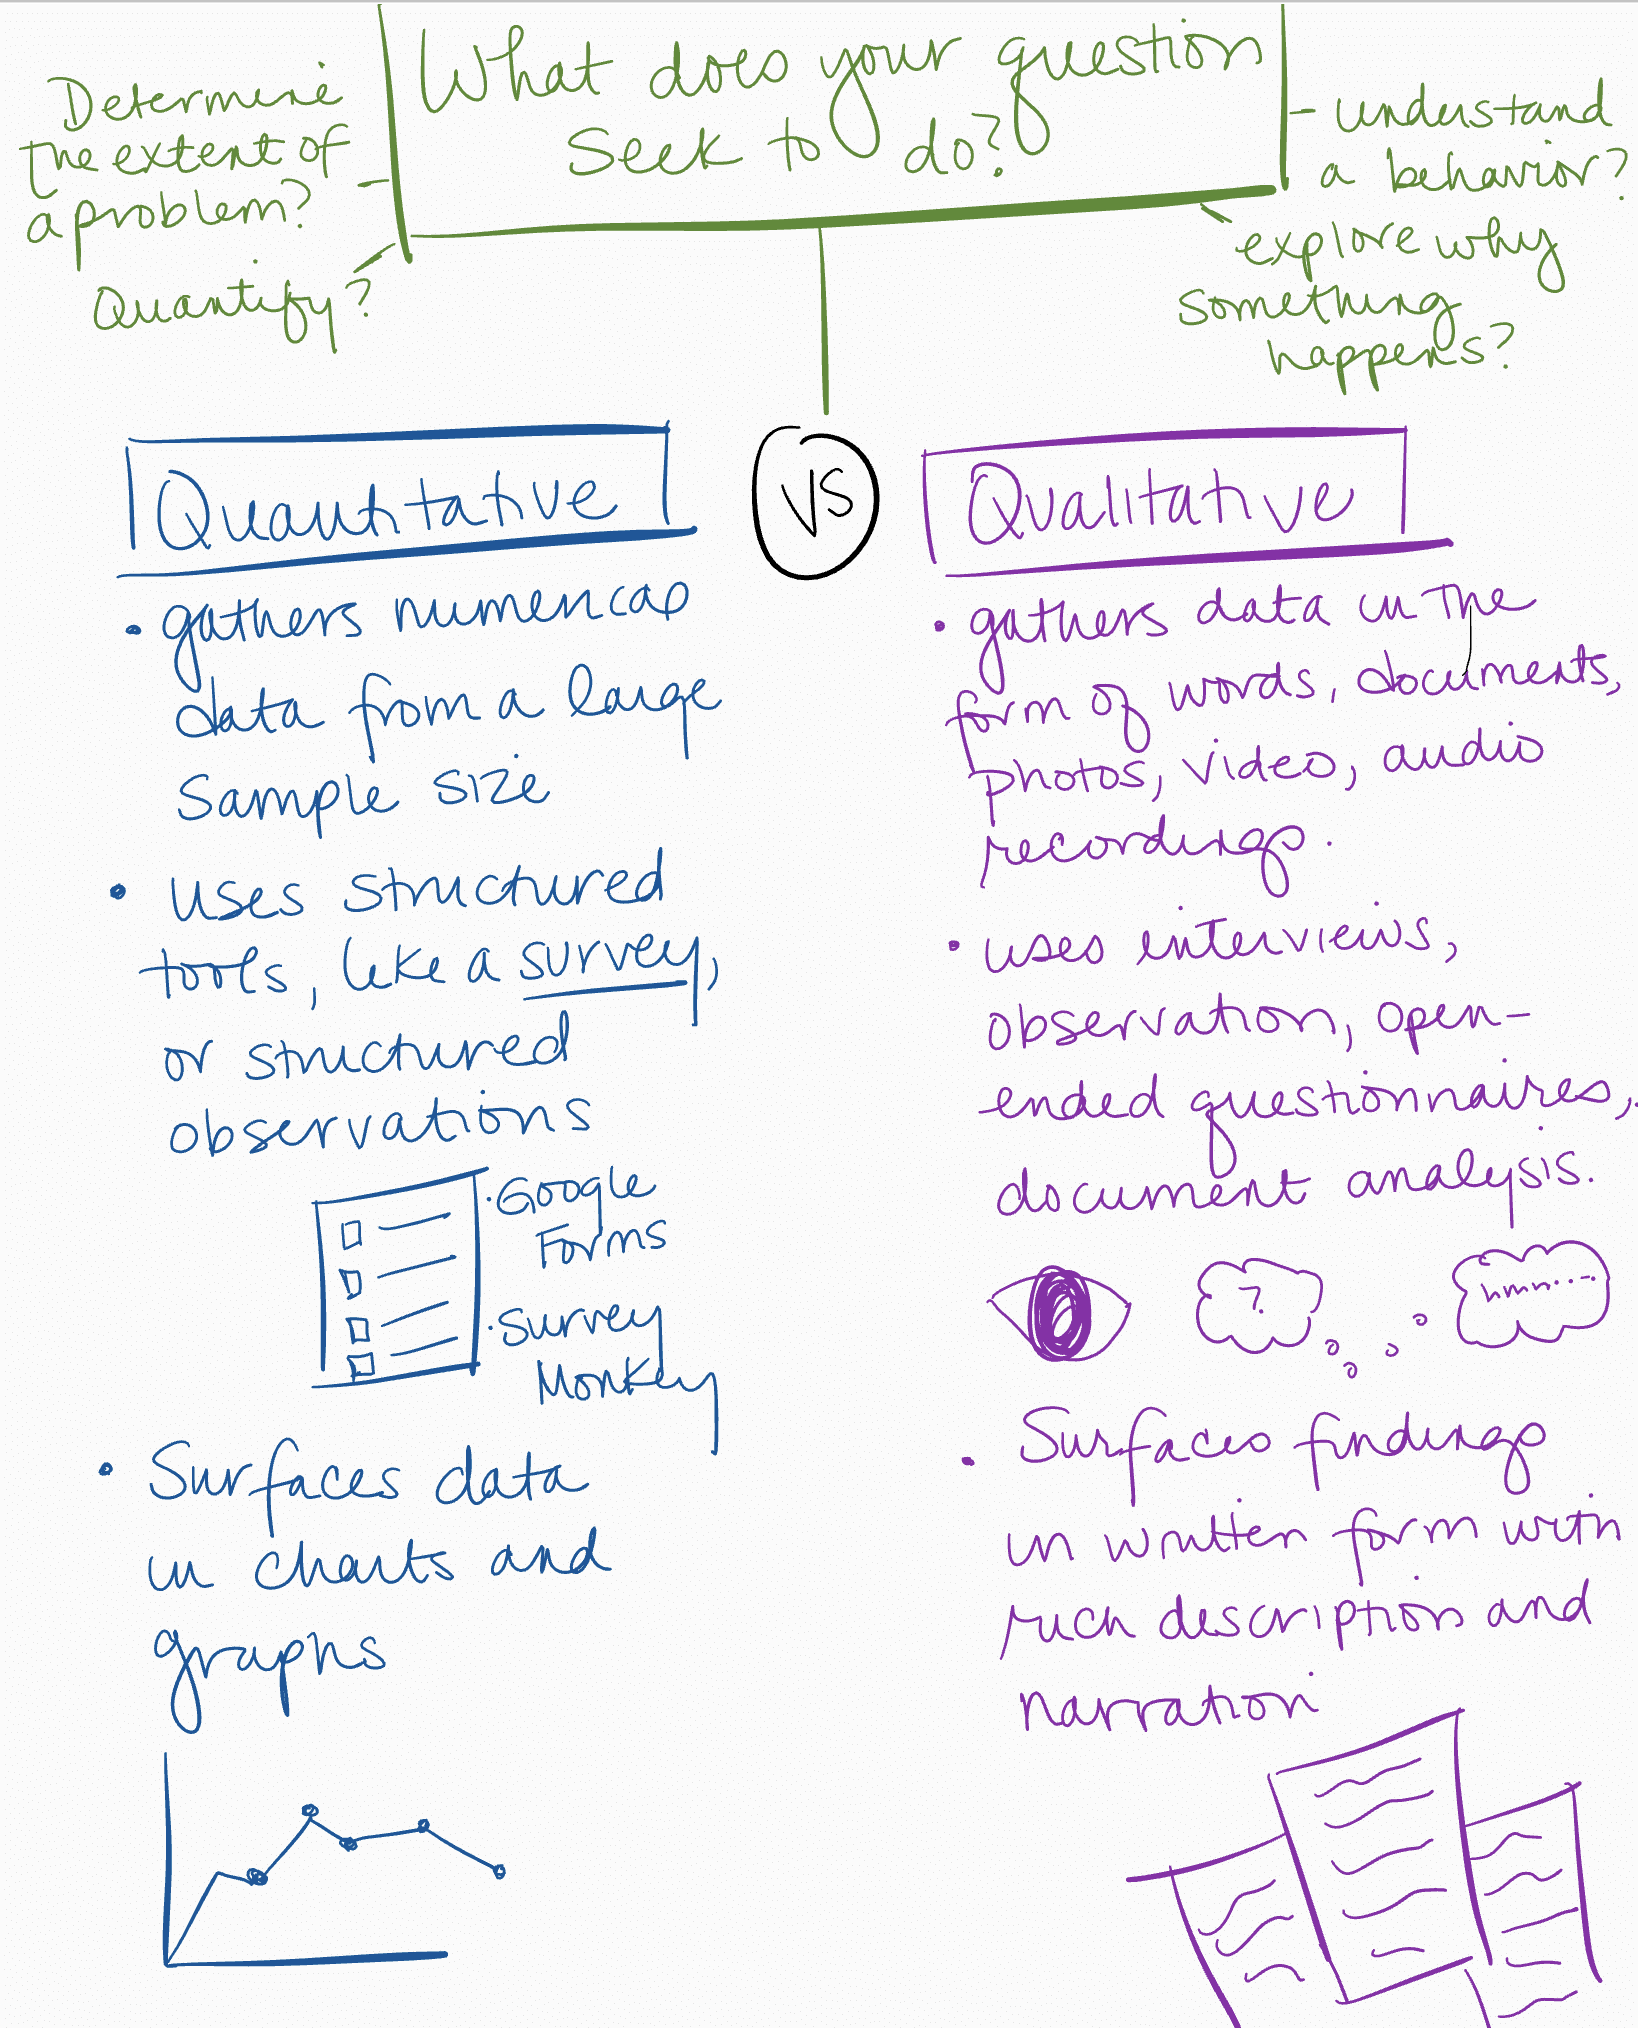 What does your question
Seek to do?
Determine
the extent of
a problem?
Quantify?
- understand
a behavior?
explore why
something
happens?
Quantitative
VS
Qualitative
• gathers numerical
data from a large
Sample size
• uses structured
tools, like a survey,
or structured
observations
• Google
Forms
• Survey
Monkey
• Surfaces data
in charts and
graphs
• gathers data in the
form of words, documents,
photos, video, audio
recordings.
• uses interviews,
observation, open-
ended questionnaires,
document analysis.
?
hmm....
• Surfaces findings
in written form with
rich description and
narration